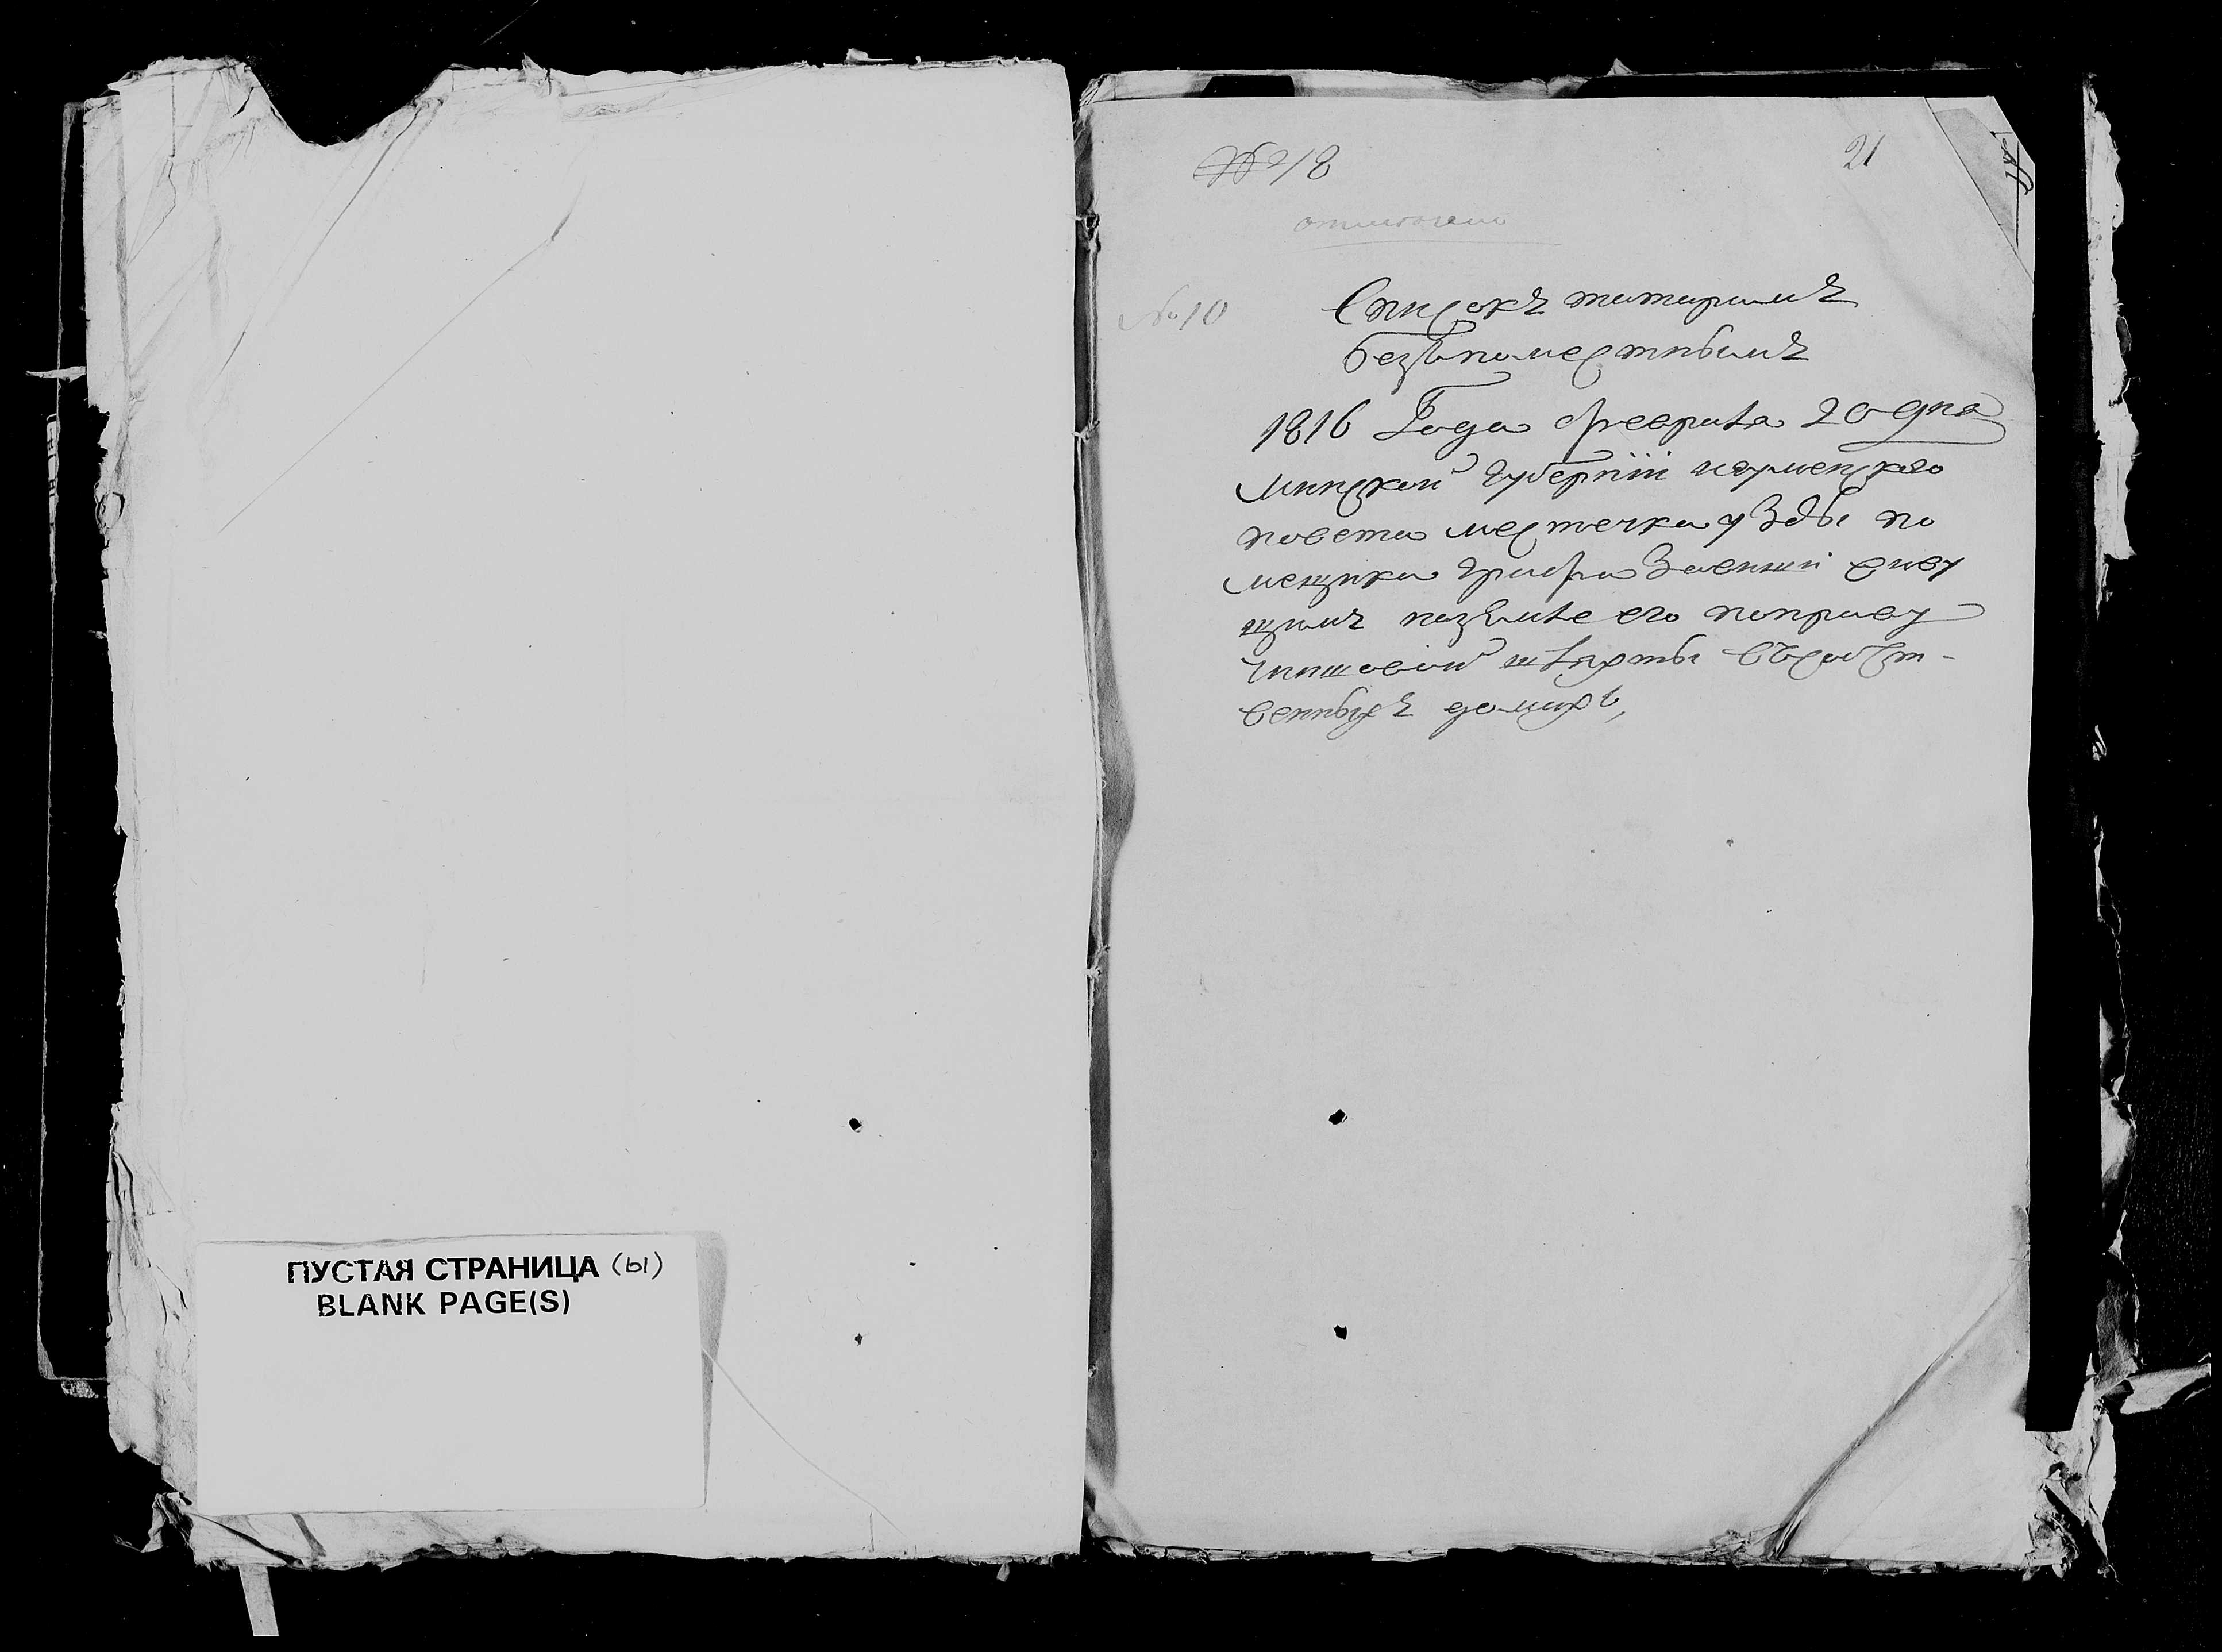 ПУСТАЯ СТРАНИЦА (ы)
BLANK PAGE(S)
№ 18
21
отмечено
№ 10
Списокъ татарамъ
безпоместнымъ
1816 Года февраля 20 дня
Минской губернiи игуменского
повета местечка узды по
мещика графа Завиши живу
щимъ наземле его поправу
чиншовой шляхты въсобст-
венныхъ домахъ,